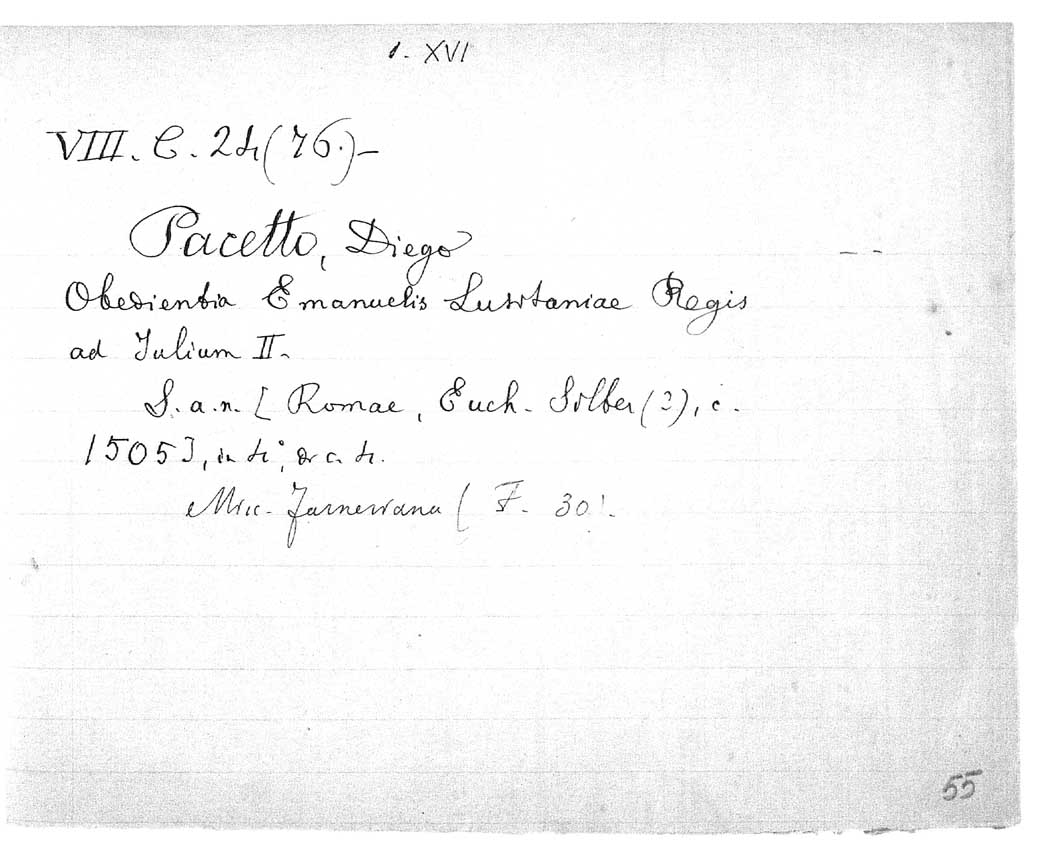 s. XVI
VIII. C. 24 (76.)-
Pacetto, Diego
Obedientia Emanuelis Lusitaniae Regis
ad Julium II.
S. a. n. [Romae, Euch. Silber (?), c.
1505], in 4°, di c. 4.
Misc. Farnesiana ( F. 30).
55